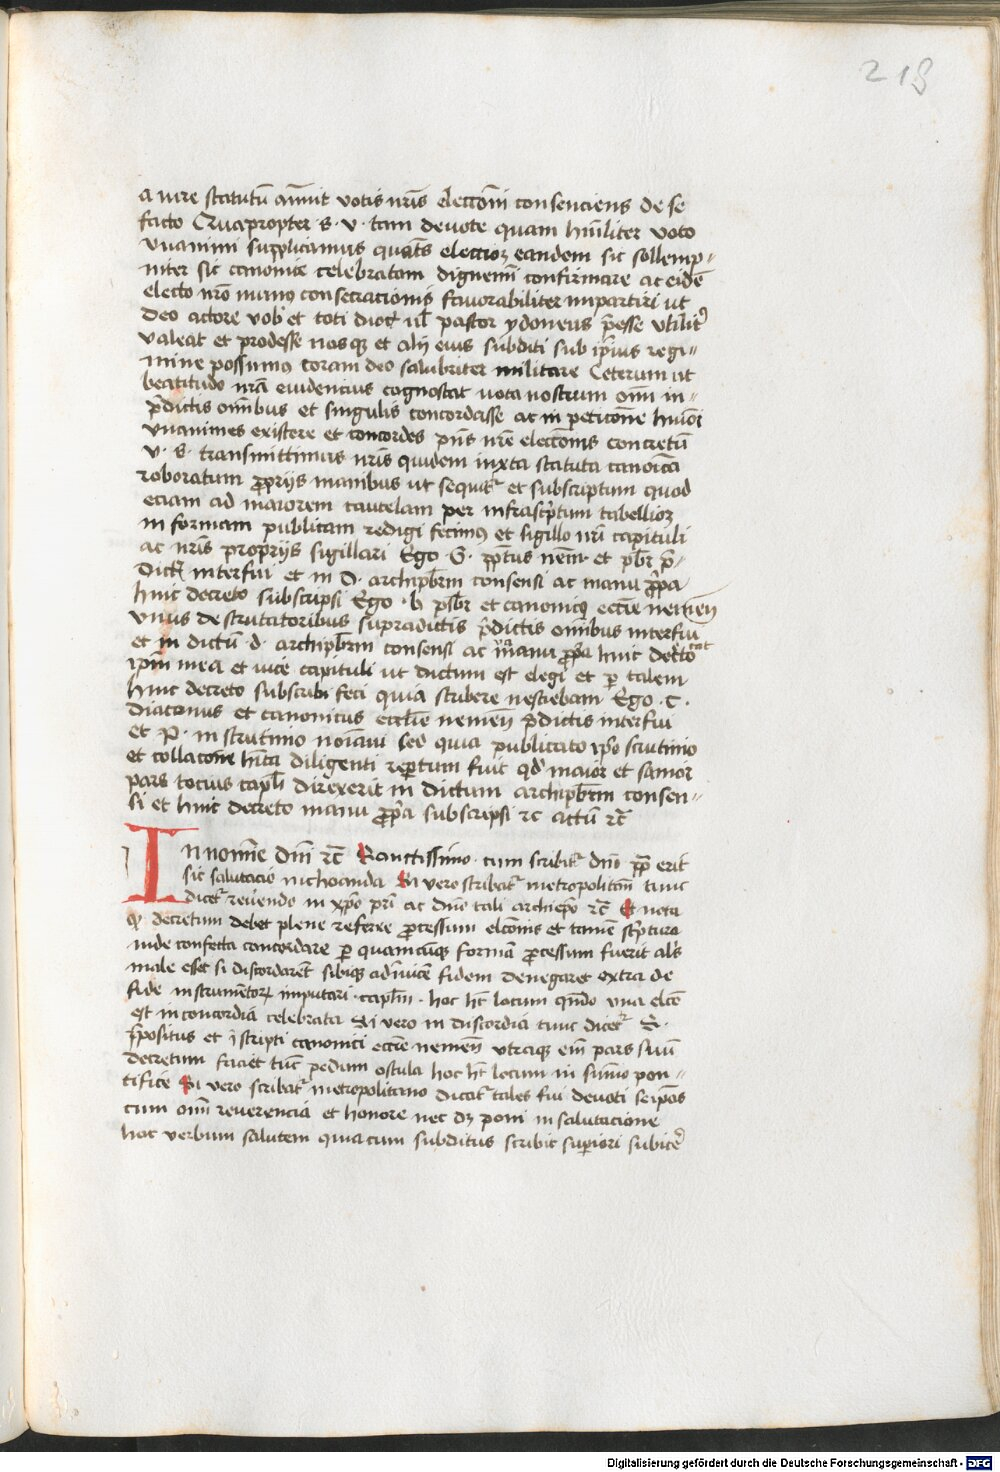 218
a iure statutū annuit votis nr̄is elecc̄oni consenciens de se
facto Quapropter s. v. tam devote quam hūiliter voto
vnanimi supplicamus quat̄s eleccioꝫ eandem sic sollemp=
niter sic canonice celebratam dignemī confirmare ac eidē
electo nr̄o munꝰ consecracionis favorabiliter impartiri ut
deo actore vob̄ et toti dioc̄ ul̄ pastor ydoneus p̄esse vtilit᷑
valeat et prodesse nosqꝫ et alij eius subditi sub ip̄ius regi=
mine possumꝰ coram deo salubriter militare Ceterum ut
beatitudo nr̄a euidencius cognoscat vota nostrum om̄i in=
p̄dictis om̄ibus et singulis concordasse ac in peticōne huiōi
vnanimes existere et concordes pn̄s nr̄e elecc̄onis concretū
v. s. transmittimus nr̄is quidem iuxta statuta canōica
roboratum ꝓprijs manibus ut sequit᷑ et subscriptum quod
eciam ad maiorem cautelam per infrascp̄tum tabellioꝫ
in formam publicam redigi fecimꝰ et sigillo nr̄i capituli
ac nr̄is proprijs sigillari Ego G. pp̄tus nem̄. et pb̄r p̄=
dict᷑ interfui et in D. archipb̄rm consensi ac manu ꝓp̄a
huic decreto subscripsi Ego .h psb̄r et canonicꝰ ecc̄ie nemen̄
vnus de scrutatoribus supradictis p̄dictis om̄ibus interfui
et in dictū .d. archipb̄rm consensi ac manu ꝓp̄a huic dec̄to
ip̄m mea et vice capituli ut dictum est elegi et ꝑ talem
huic decreto subscribi feci quia scribere nesciebam Ego .C.
diaconus et canonicus eccl̄ie nemen̄ p̄dictis interfui
et P. in scrutinio noīavi sed quia publicato ip̄o scrutinio
et collacōne hīta diligenti rep̄tum fuit qd᷑ maior et sanior
pars tocius capl̄i direxerit in dictum archipb̄rm consen=
si et huic decreto manu ꝓp̄a subscripsi rc actū rc̄
In nomīe dn̄i rc̄ Sanctissimo. cum scribit᷑ dn̄i pp̄ erit
sic salutacio inchoanda Si vero scribat᷑ metropolitan̄ tunc
dicet᷑ reūendo in xp̄o pr̄i ac dn̄o tali archiep̄o rc̄ Et nota
ꝙ decretum debet plene referre ꝓcessum elc̄onis et tamen sc̄ptura
inde confecta concordare ꝑ quamcūqꝫ formā ꝓcessum fuerit al̄s
male esset si discordarēt sibiqꝫ adīuicē fidem denegaret extra de
fide instrumētoꝝ imputari. capl̄m. hoc ht̄ locum qn̄do vna elc̄e
est in concordia celebrata Si vero in discordia tunc dicet᷑ S.
p̄positus et īscripti canonici ecc̄ie nemen̄ vtraqꝫ em̄ pars suū
decretum faciet tūc pedum oscula hoc ht̄ locum in sūmo pon=
tifice Si vero scribat᷑ metropolitano dicat᷑ tales sui devoti seip̄os
cum om̄i reverencia et honore nec dꝫ poni in salutacione
hoc verbum salutem quia cum subditus scribit sup̄iori subice᷑
Digitalisierung gefördert durch die Deutsche Forschungsgemeinschaft - DFG